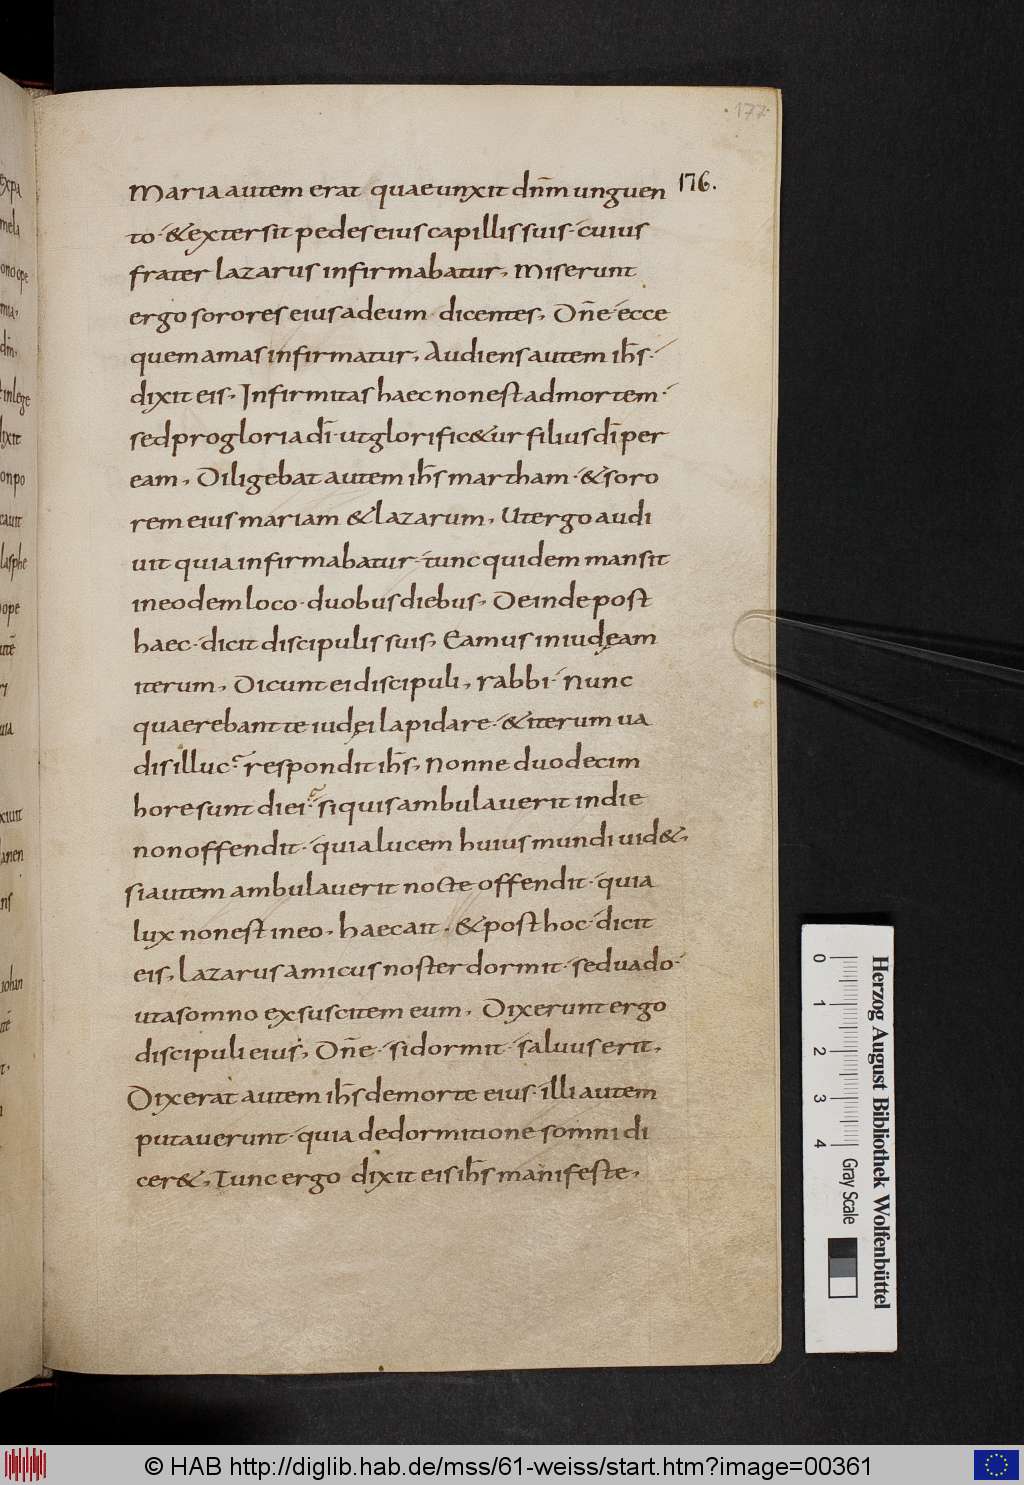 177
176.
Maria autem erat quae unxit dñm unguen
to · & extersit pedes eius capillis suis · cuius
frater lazarus infirmabatur, Miserunt
ergo sorores eius ad eum · dicentes, Dñe · ecce
quem amas infirmatur, Audiens autem ih̅s ·
dixit eis, Infirmitas haec non est ad mortem ·
sed pro gloria dī · ut glorific&ur filius dī per
eam, Diligebat autem ih̅s martham · & soro
rem eius mariam & lazarum, Ut ergo audi
uit quia infirmabatur · tunc quidem mansit
in eodem loco · duobus diebus, Deinde post
haec · dicit discipulis suis, Eamus in iudęam
iterum, Dicunt ei discipuli, rabbi · Nunc
quaerebant te iudęi lapidare · & iterum ua
dis illuc? respondit ih̅s, Nonne duodecim
hore sunt diei? si quis ambulauerit in die
non offendit · quia lucem huius mundi uid&,
si autem ambulauerit nocte offendit · quia
lux non est in eo, haec ait · & post hoc · dicit
eis, lazarus amicus noster dormit · sed uado ·
ut a somno exsuscitem eum, Dixerunt ergo
discipuli eius, Dñe · si dormit · saluus erit,
Dixerat autem ih̅s de morte eius · illi autem
putauerunt · quia de dormitione somni di
cer&, Tunc ergo dixit eis ih̅s manifeste,
expa
mela
ope
mia,
dm̄,
inlege
dixit
onpo
cauit
lasphe
ope
autē
uia
xiuit
anen
iohan
0 1 2 3 4 Gray Scale
Herzog August Bibliothek Wolfenbüttel
© HAB http://diglib.hab.de/mss/61-weiss/start.htm?image=00361